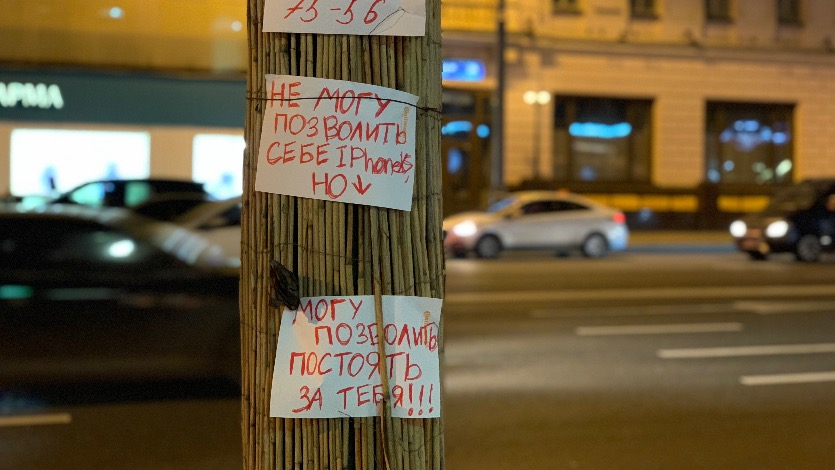 75-56
НЕ МОГУ
ПОЗВОЛИТЬ
СЕБЕ IPhone15,
НО↓
МОГУ
ПОЗВОЛИТЬ
ПОСТОЯТЬ
ЗА ТЕБЯ!!!
АРМА